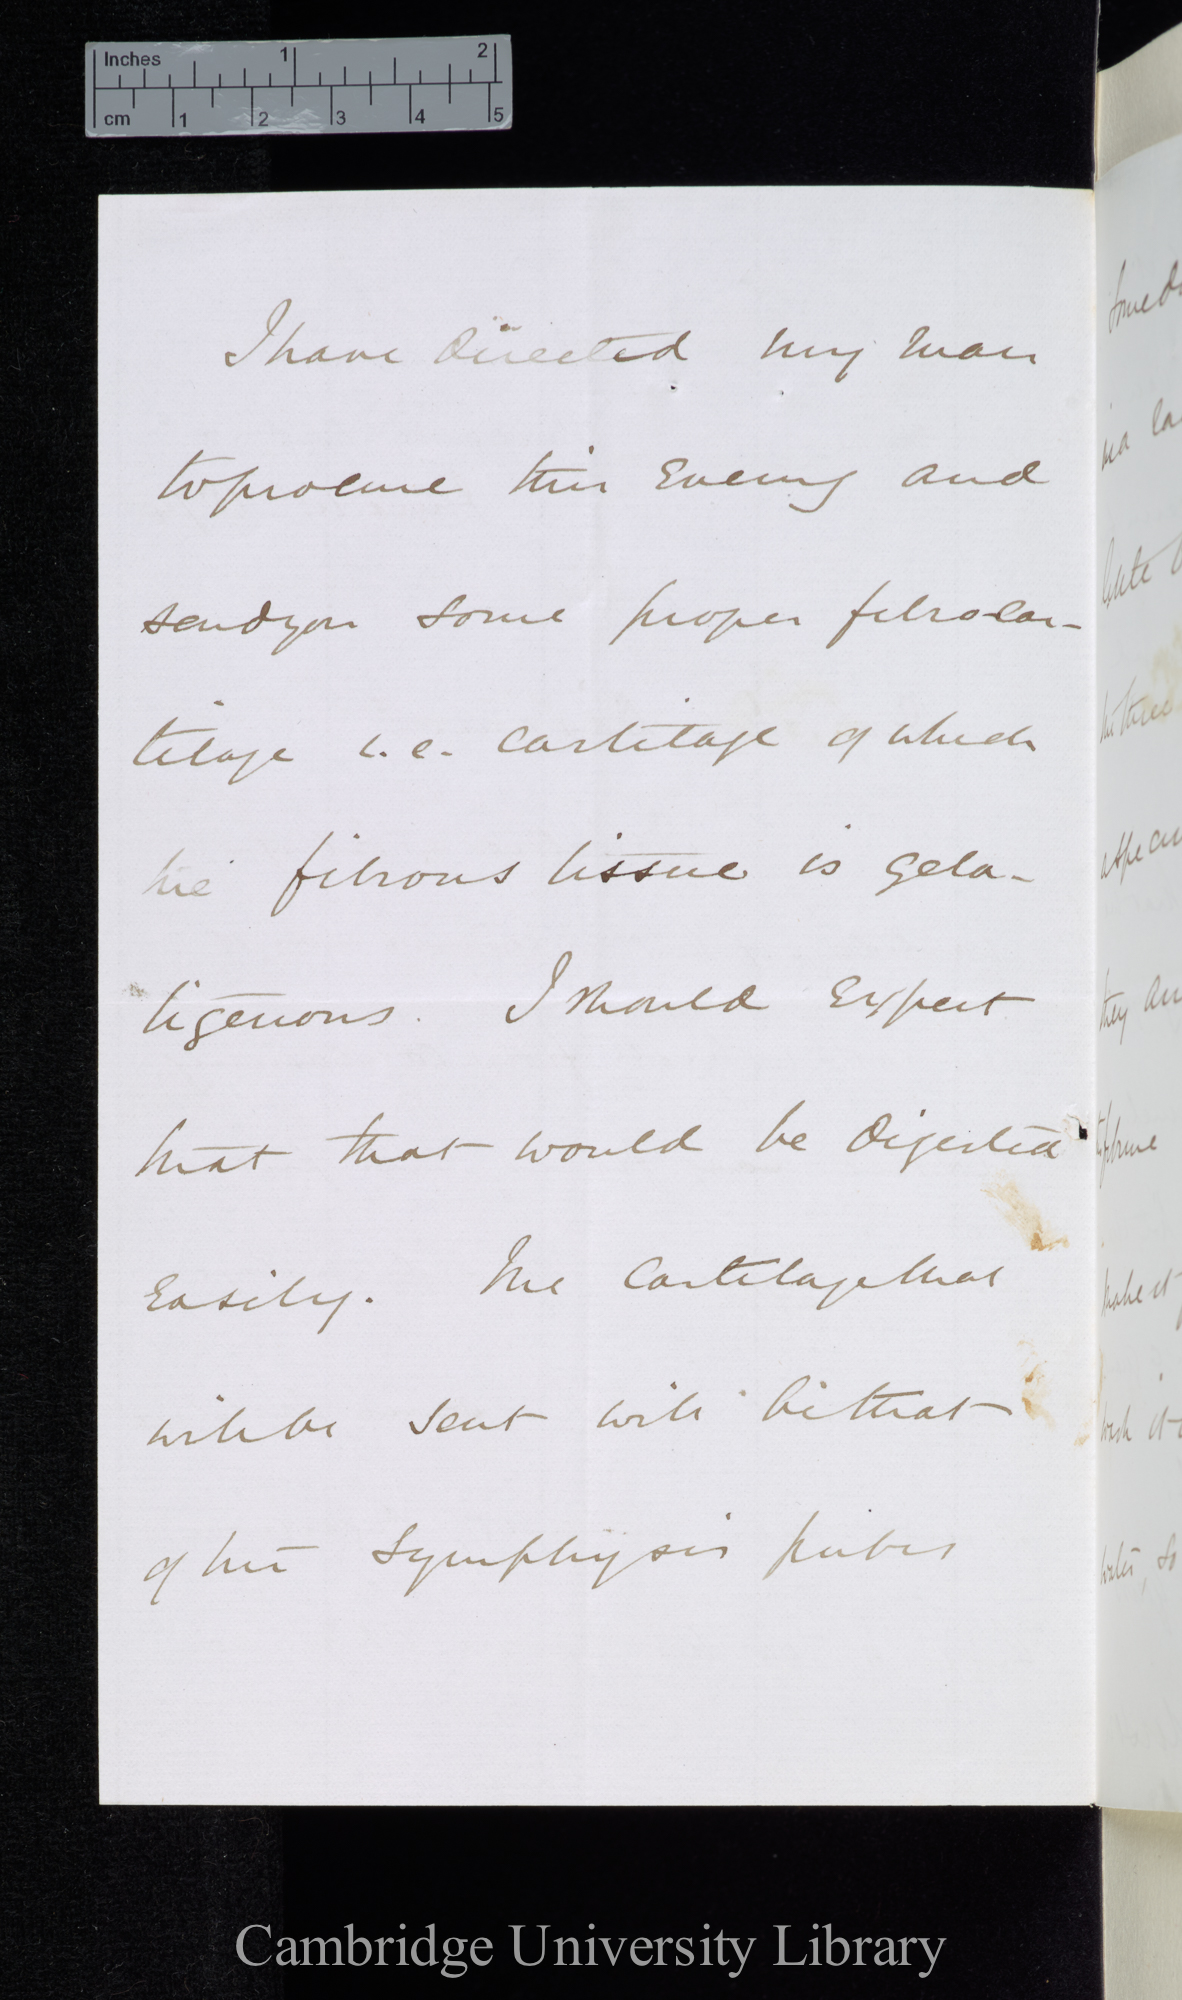 Inches 1 2
cm 1 2 3 4 5
I have directed my man
to procure this Evening and
send you some proper fibrocar-
tilage i.e. cartilage of which
the fibrous tissue is gela-
tigenous. I should Expect
that that would be digested
Easily. The Cartilage that
will be sent will be that
of the Symphysis pubis
some
in a
they
make it
wash it
water, so
Cambridge University Library